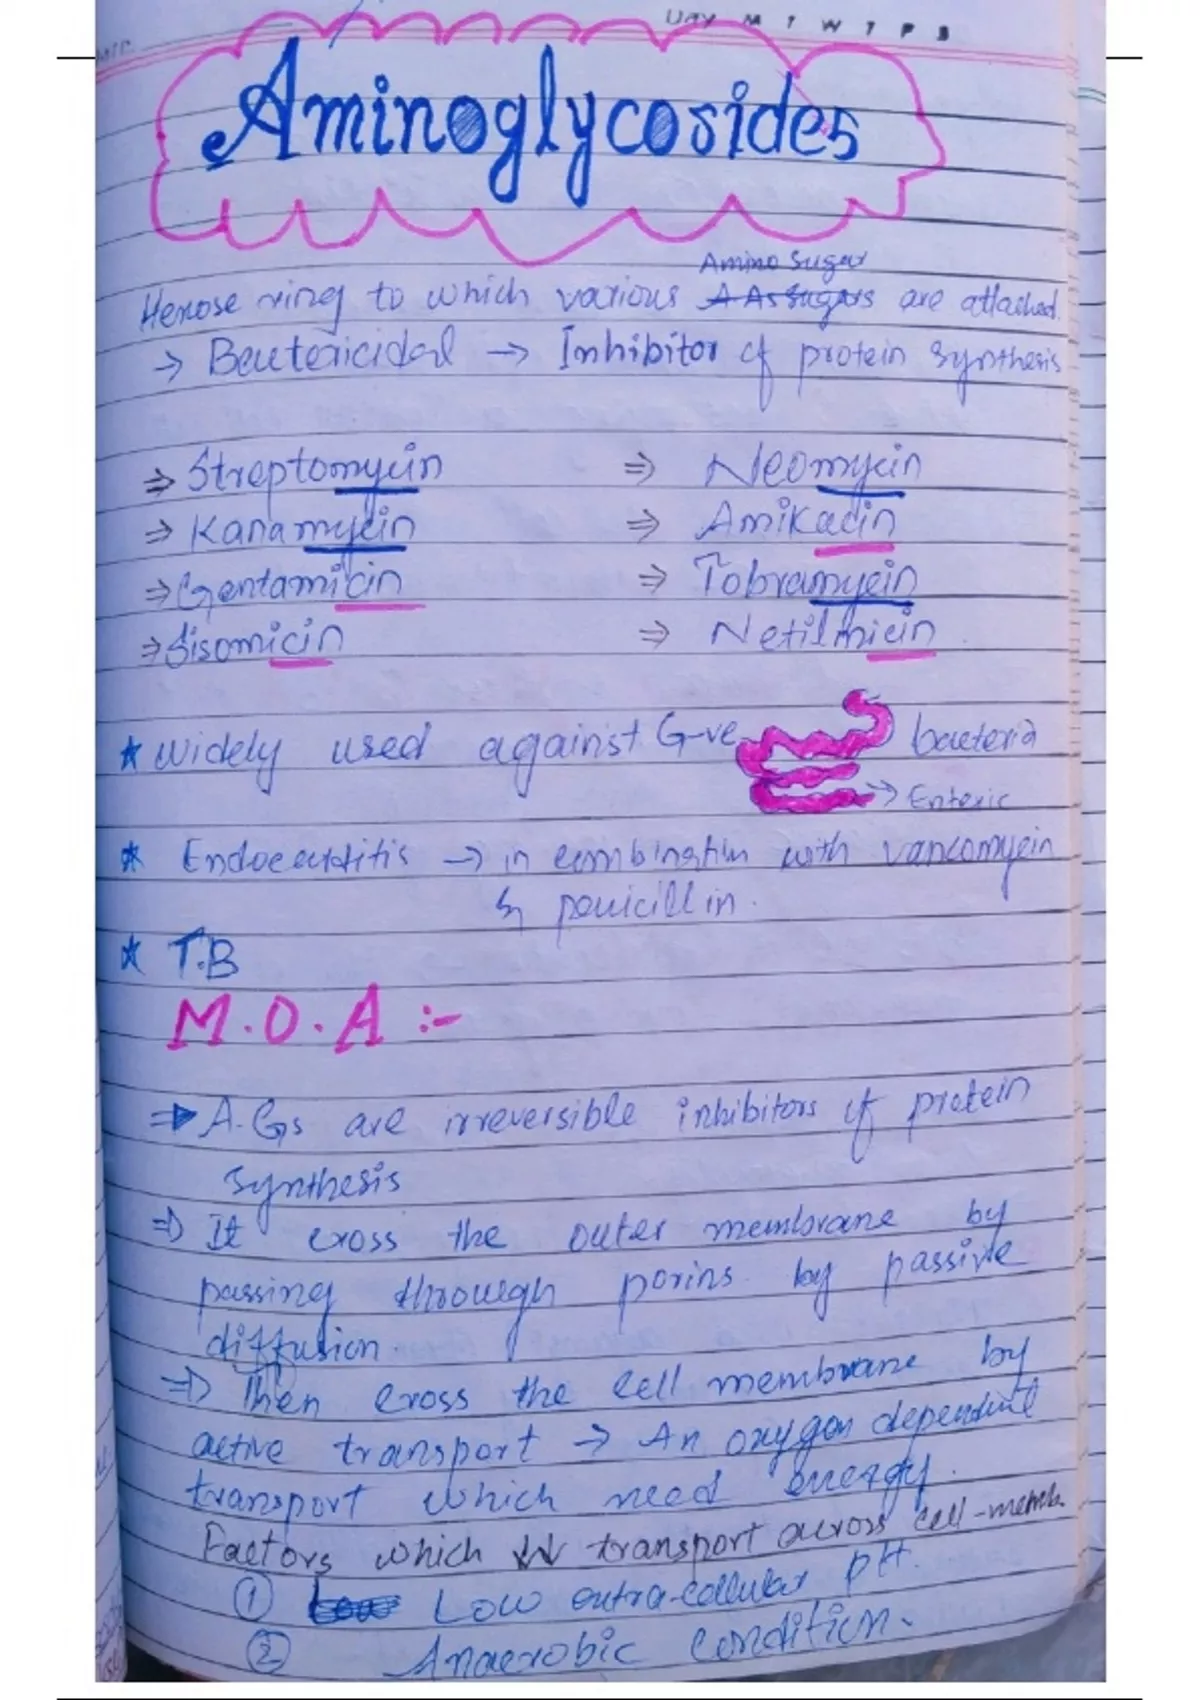 DAY M T W T F S
Aminoglycosides
Amino Sugar
Hexose ring to which various A As sugars are attached.
→ Bactericidal → Inhibitor of protein synthesis
⇒ Streptomycin ⇒ Neomycin
⇒ Kanamycin ⇒ Amikacin
⇒ Gentamicin ⇒ Tobramycin
⇒ Sisomicin ⇒ Netilmicin
★ Widely used against G-ve bacteria
→ Enteric
★ Endocarditis → in combination with vancomycin
& penicillin.
★ T.B
M.O.A :-
⇒ A.Gs are irreversible inhibitors of protein
synthesis
⇒ It cross the outer membrane by
passing through porins by passive
diffusion.
⇒ Then cross the cell membrane by
active transport → An oxygen dependent
transport which need energy.
Factors which ↓↓ transport across cell-memb.
① Low extra-cellular pH.
② Anaerobic Condition.